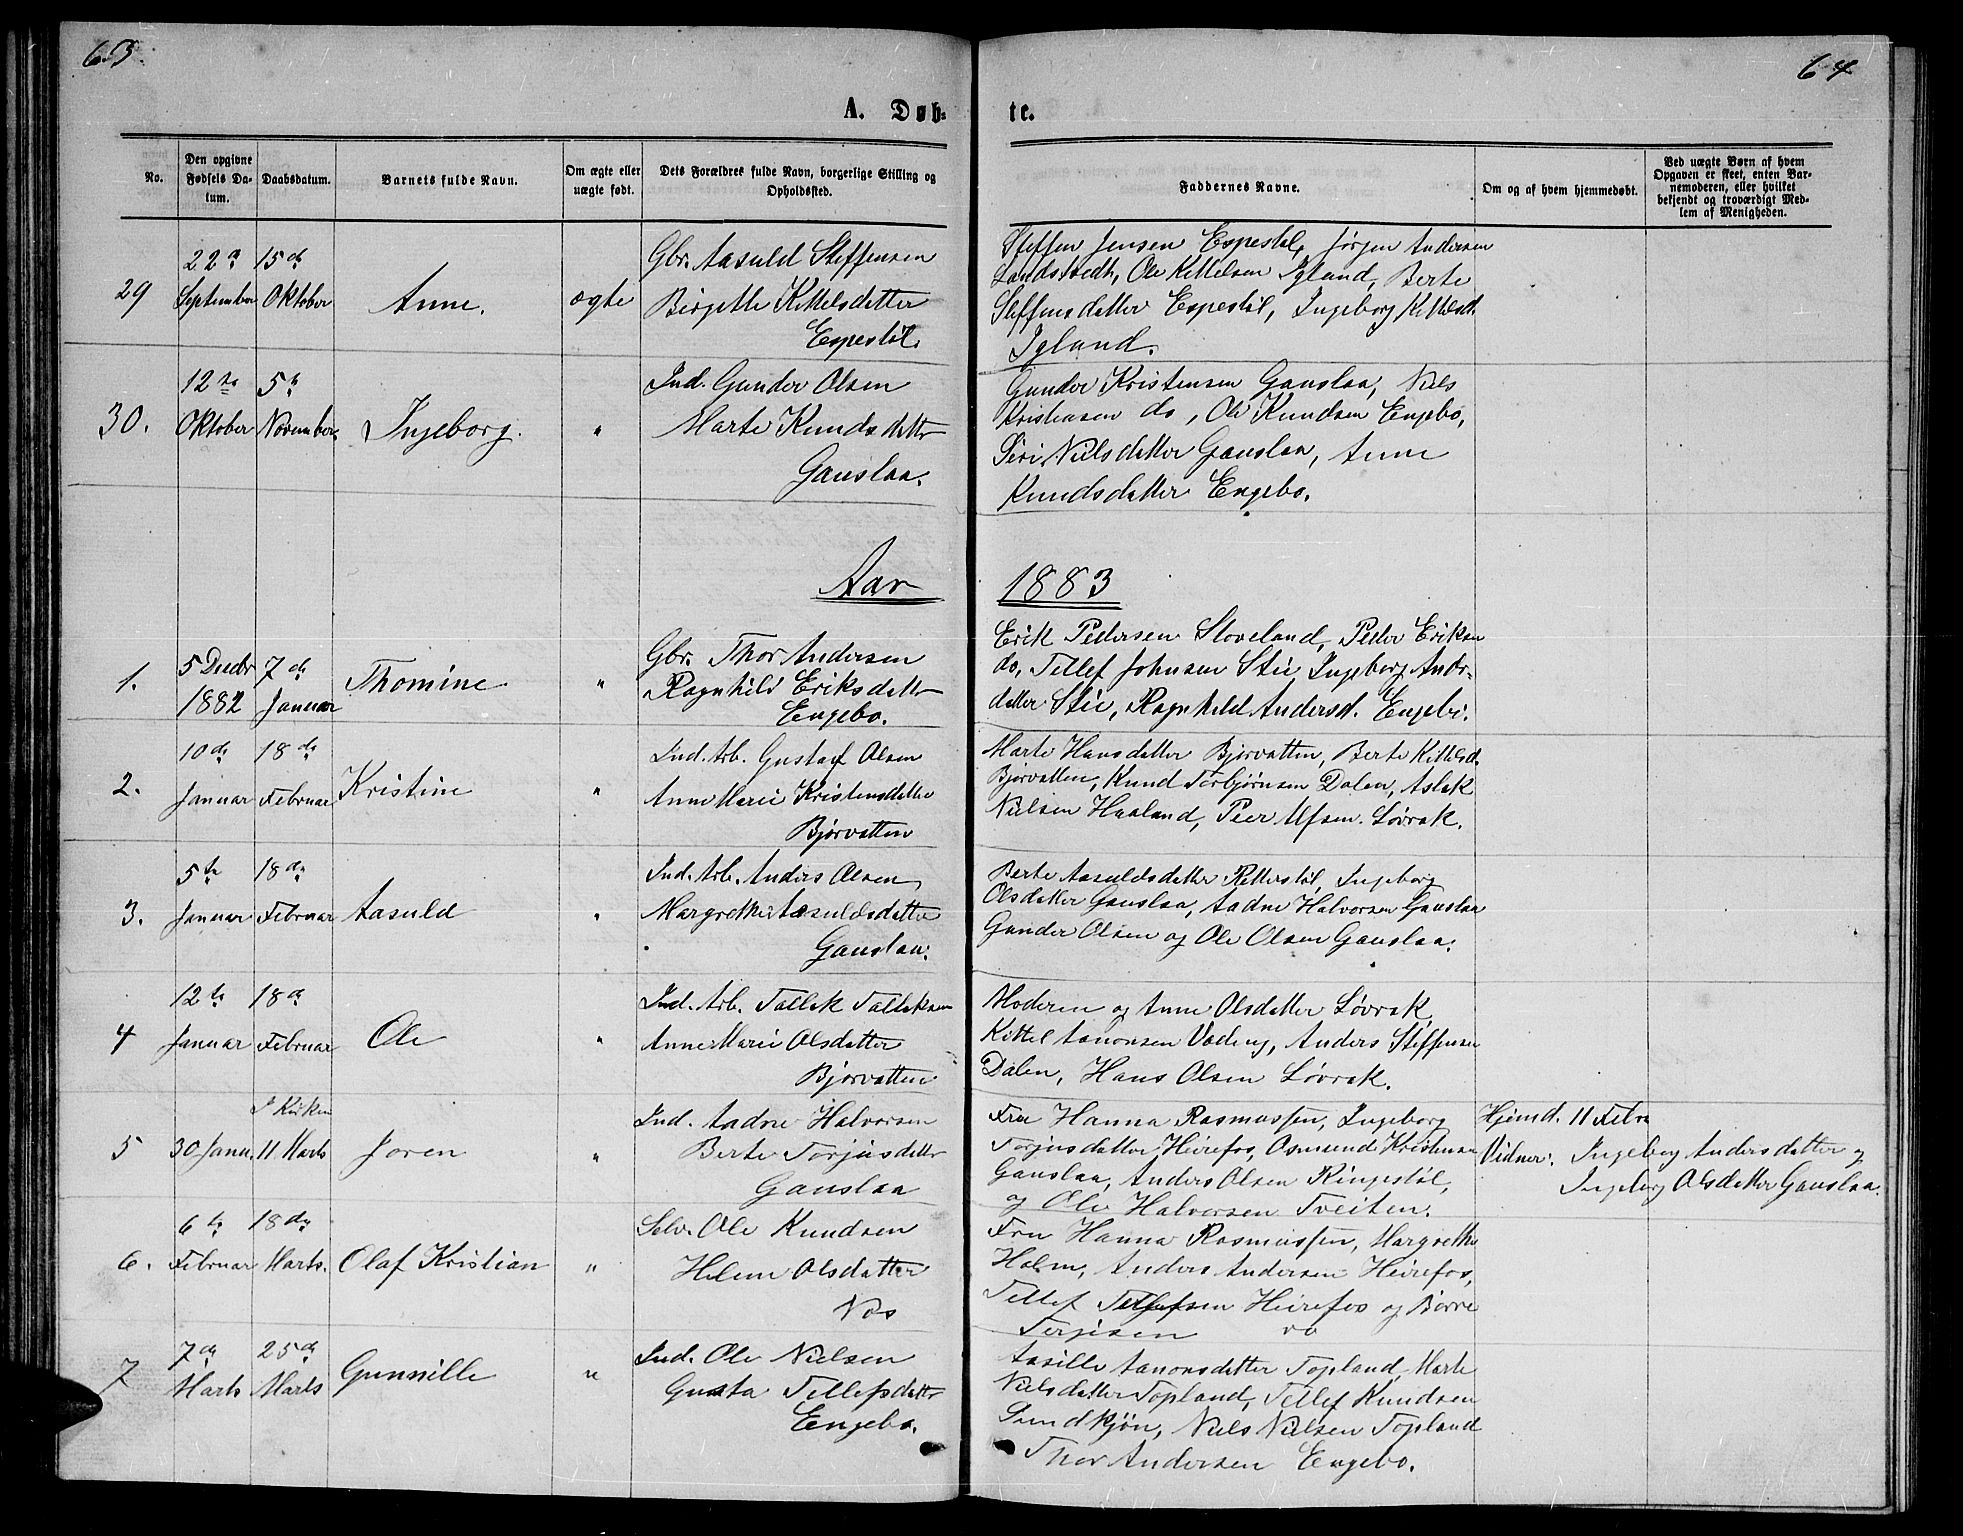 63.
64
A. Døb-
te.
No.
Den opgivne Fødsels Da-
tum.
Daabsdatum.
Barnets fulde Navn.
Om ægte eller
uægte født.
Dets Forældres fulde Navn, borgerlige Stilling og
Opholdssted.
Faddernes Navne.
Om og af hvem hjemmedøbt.
Ved uægte Børn af hvem
Opgaven er skeet, enten Bar-
nemoderen, eller hvilket
bekjendt og troværdigt Med-
lem af Menigheden.
29
22d
September
15d
Oktober
Anne.
ægte
Gbr. Aasuld Steffensen
Birgitte Kittelsdatter
Espestøl.
Steffen Jensen Espestøl, Jørgen Andersen
Landstvedt, Ole Kittelsen Igland, Berte
Steffensdatter Espestøl, Ingeborg Kittelsd.
Igland.
30.
12te
Oktober
5te
November
Ingeborg.
"
Ind. Gunder Olsen
Marte Knudsdatter
Gauslaa.
Gunder Kristensen Gauslaa, Niels
Kristensen do, Ole Knudsen Engebo,
Siri Nielsdatter Gauslaa, Anne
Knudsdatter Engebo.
Aar
1883
1.
5 Decbr
1882
7de
Januar
Thomine
"
Gbr. Thor Andersen
Ragnhild Eriksdatter
Engebo.
Erik Pedersen Stoveland, Peder Eriksen
do, Tellef Johnsen Stie, Ingeborg Andr-
datter Stie, Ragnhild Andersd. Engebo.
2.
10de
Januar
18de
Februar
Kristine
"
Ind. Arb. Gustaf Olsen
Anne Marie Kristensdatter
Bjorvatten
Marte Hansdatter Bjorvatten, Berte Kittelsd.
Bjorvatten, Knud Torbjørnsen Dalen, Aslak
Nielsen Haaland, Peer Ulfsen Løvrak.
3.
5te
Januar
18de
Februar
Aasuld
"
Ind. Arb. Anders Olsen
Margrethe Aasuldsdatter
Gauslaa.
Berte Aasuldsdatter Retterstøl, Ingeborg
Olsdatter Gauslaa, Aadne Halvorsen Gauslaa
Gunder Olsen og Ole Olsen Gauslaa.
4
12te
Januar
18d
Februar
Ole
"
Ind. Arb. Tallak Tallaksen
Anne Marie Olsdatter
Bjorvatten
Moderen og Anne Olsdatter Løvrak,
Kittel Aanonsen Vading, Anders Steffensen
Dalen, Hans Olsen Løvrak.
5
30 Janu.
I Kirken
11 Marts
Joren
"
Ind. Aadne Halvorsen
Berte Torjusdatter
Gauslaa
Fru Hanna Rasmussen, Ingeborg
Torjusdatter Heirefos, Osmund Kristensen
Gauslaa, Anders Olsen Ringestøl,
og Ole Halvorsen Tveiten.
Hjemd. 11 Febr.
Vidner: Ingeborg Andersdatter og
Ingeborg Olsdatter Gauslaa.
6.
6te
Februar
18de
Marts.
Olaf Kristian
"
Selv. Ole Knudsen
Helene Olsdatter
Næs
Fru Hanna Rasmussen, Margrethe
Holm, Anders Andersen Heirefos,
Tellef Tellefsen Heirefos og Børre
Terjesen do
7
7d
Marts
25d
Marts
Gunnille
"
Ind. Ole Nielsen
Gusta Tellefsdatter
Engebo.
Aasille Aanonsdatter Topland, Marte
Nielsdatter Topland, Tellef Knudsen
Sundtjøn, Niels Nielsen Topland
Thor Andersen Engebo.